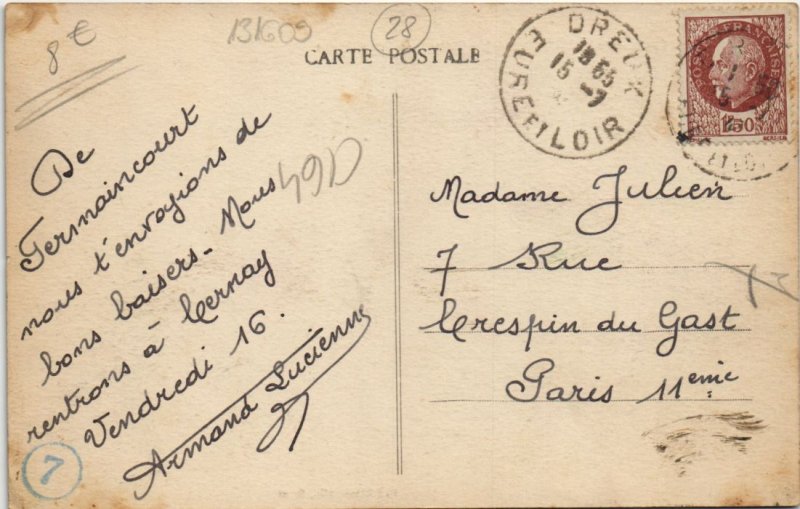 8 €
131609
28
CARTE POSTALE
DREUX
18 55
15 -7
EURE ET LOIR
POSTES FRANÇAISES
1F50
De
Germaincourt
nous t'envoyions de
bons baisers - Nous
rentrons à Cernay
Vendredi 16.
Armand Lucienne
49D
7
Madame Julien
7 Rue
Crespin du Gast
Paris 11eme